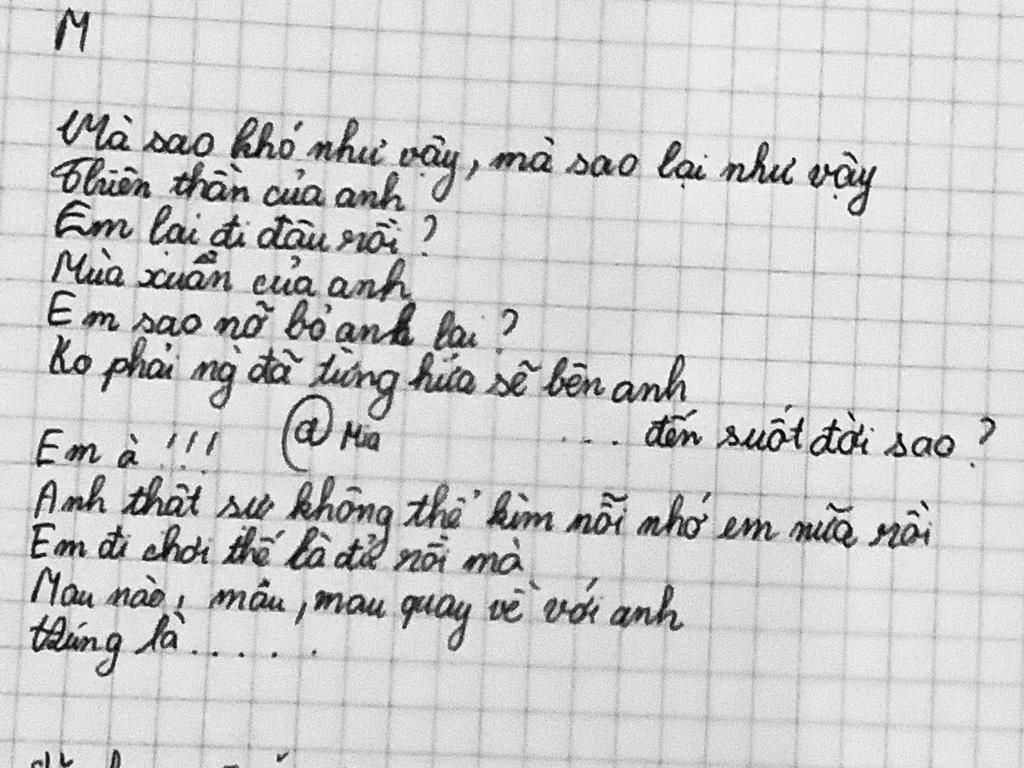 M
Mà sao khó như vậy, mà sao lại như vậy
Thiên thần của anh
Em lại đi đâu rồi?
Mùa xuân của anh
Em sao nỡ bỏ anh lại?
Ko phải ng đã từng hứa sẽ bên anh
.... đến suốt đời sao?
Em à!!! @ Mia
Anh thật sự không thể kìm nỗi nhớ em nữa rồi
Em đi chơi thế là đủ rồi mà
Mau nào, mau, mau quay về với anh
Đúng là......